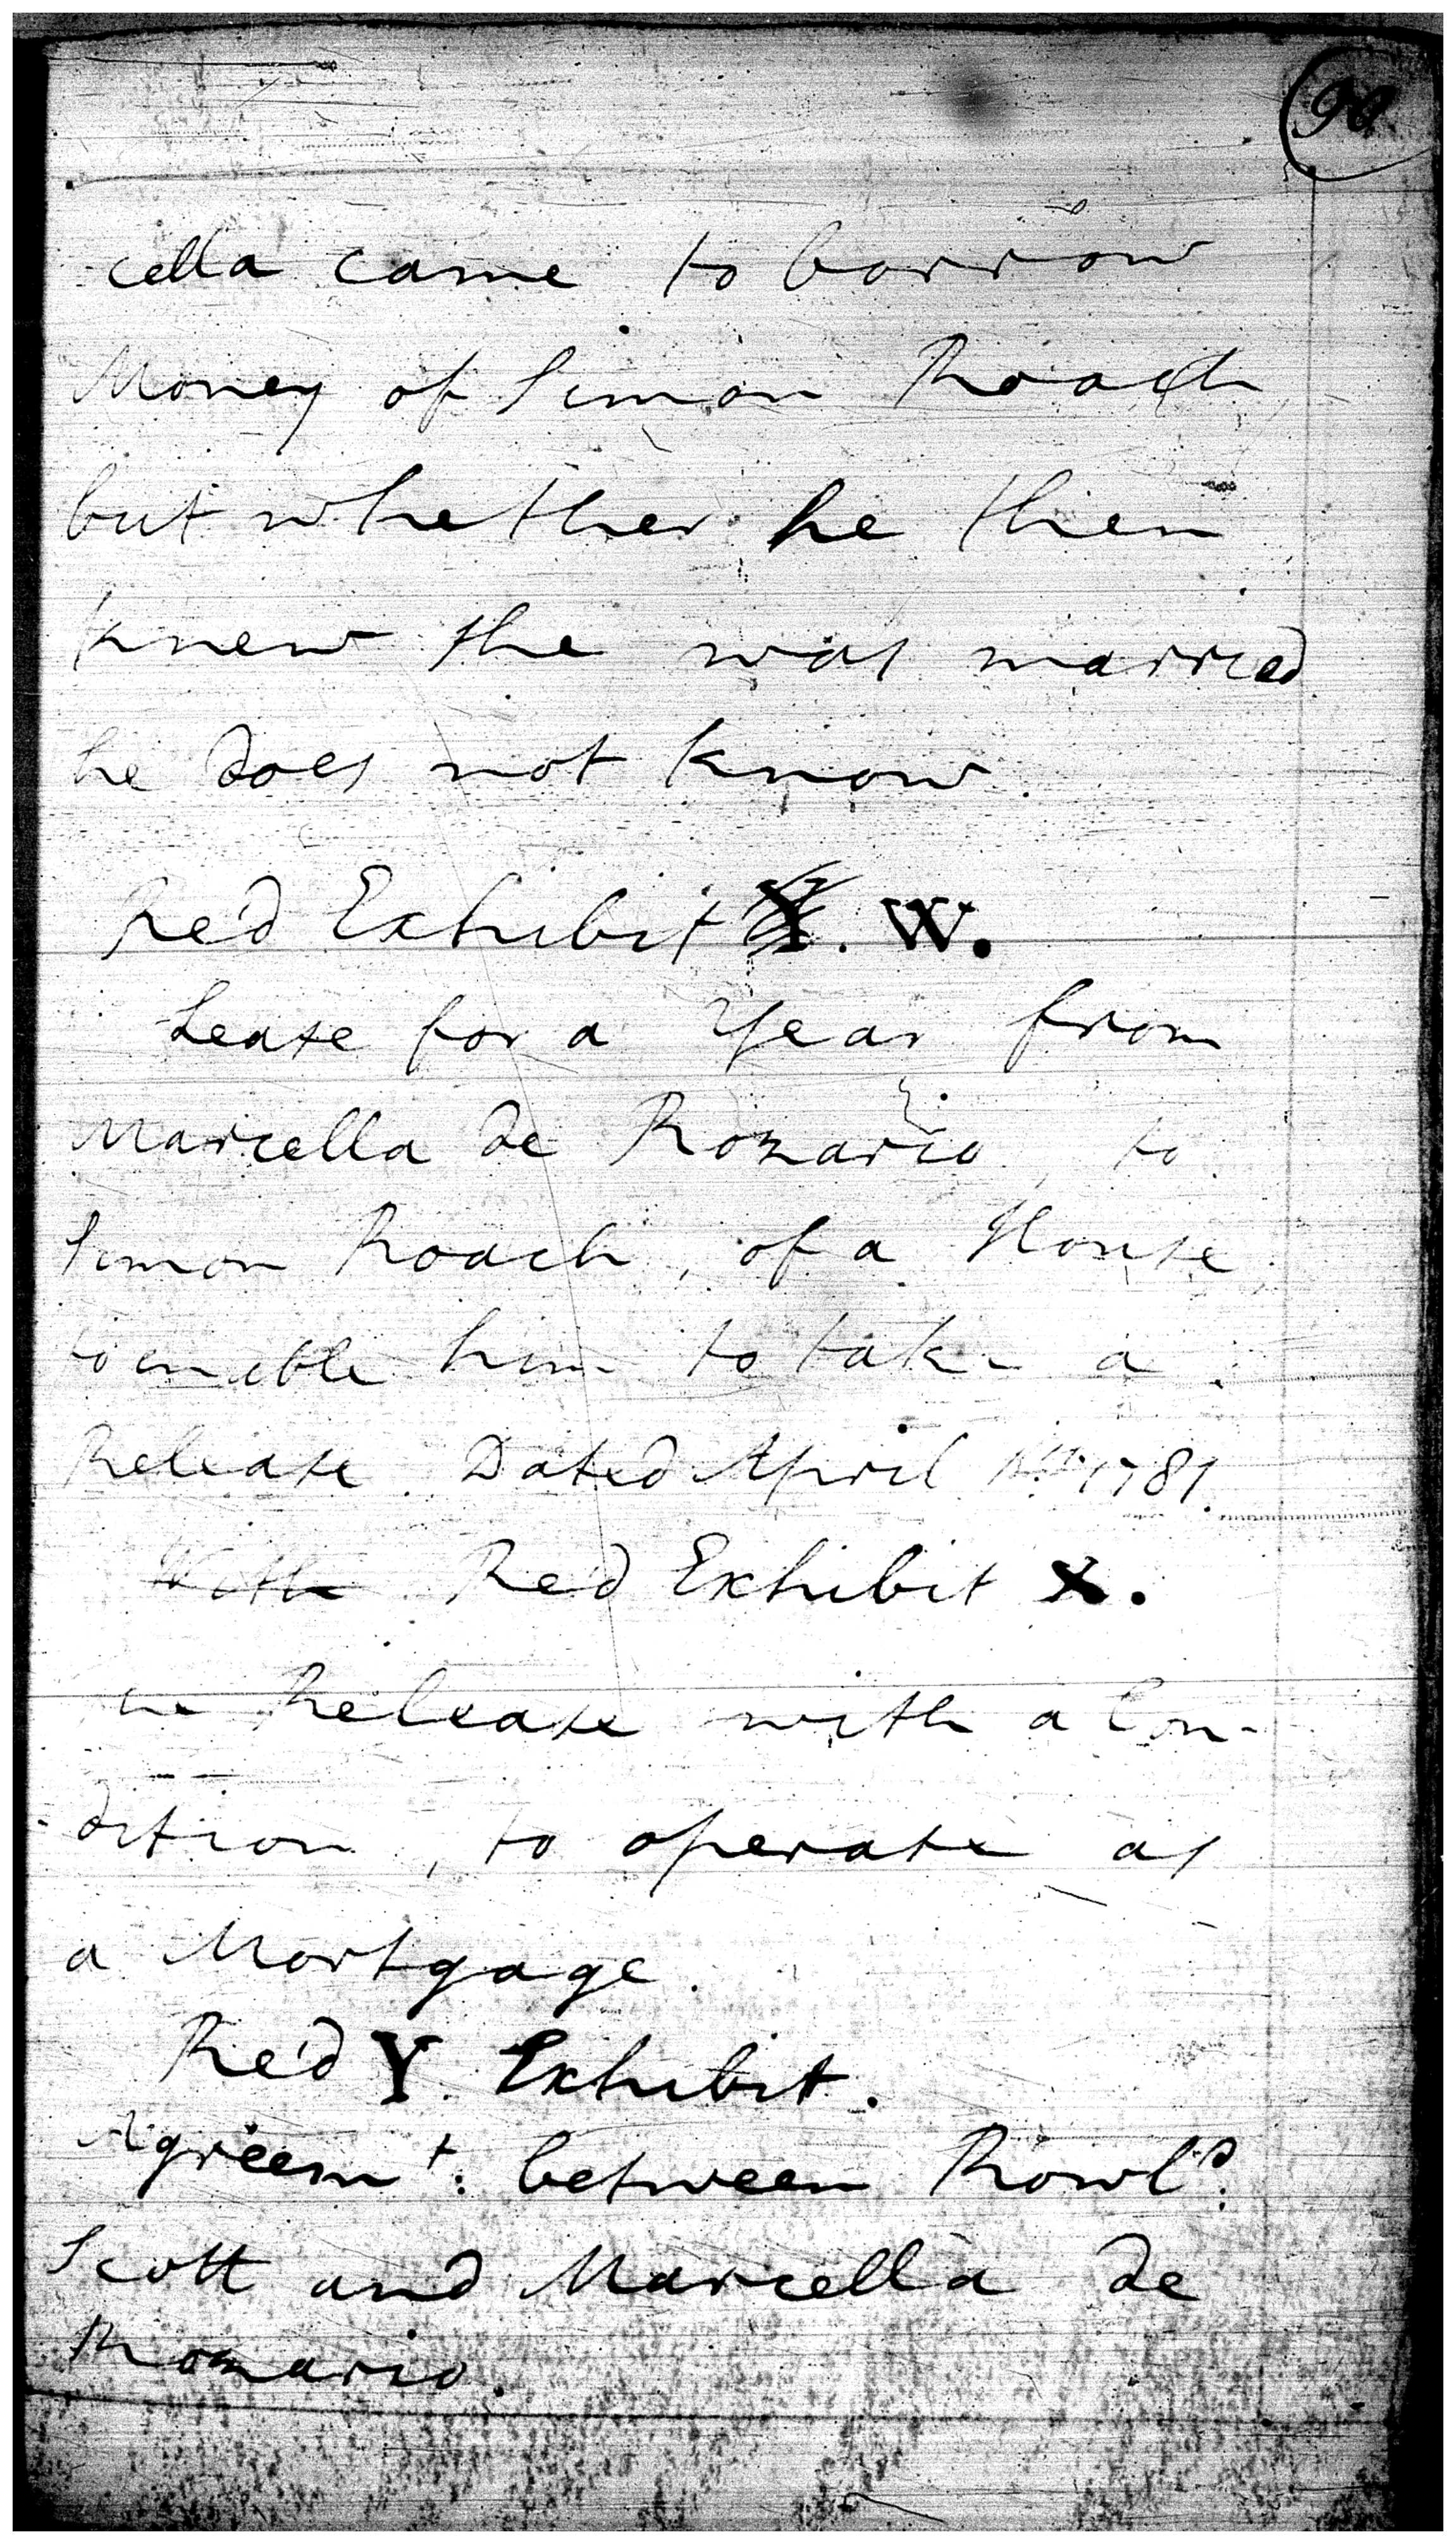 cella came to borrow
Money of Simon Roach,
but whether he then
knew she was married
he does not know.
Re'd Exhibit W.
Lease for a Year from
Marcella de Rozario, to
Simon Roach, of a House
to enable him to take a
Release. Dated April 1781.
With Re'd Exhibit X.
Release with a Con-
dition, to operate as
a Mortgage.
Re'd Y. Exhibit.
Agreemt: between Rowld:
Scott and Marcella de
Rozario.